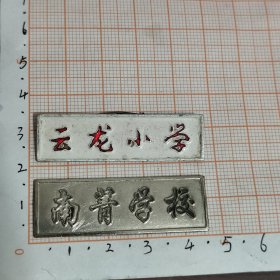 云龙小学
南菁学校
7
6
5
4
3
2
1
0 1 2 3 4 5 6